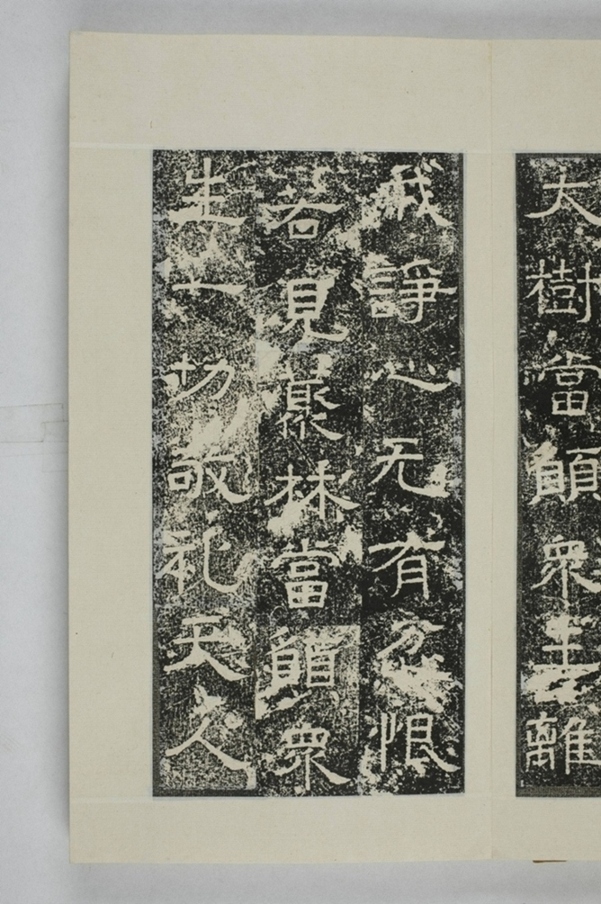 大樹當願衆生離
我諍心无有忿恨
若見藂林當願衆
生一切敬礼天人